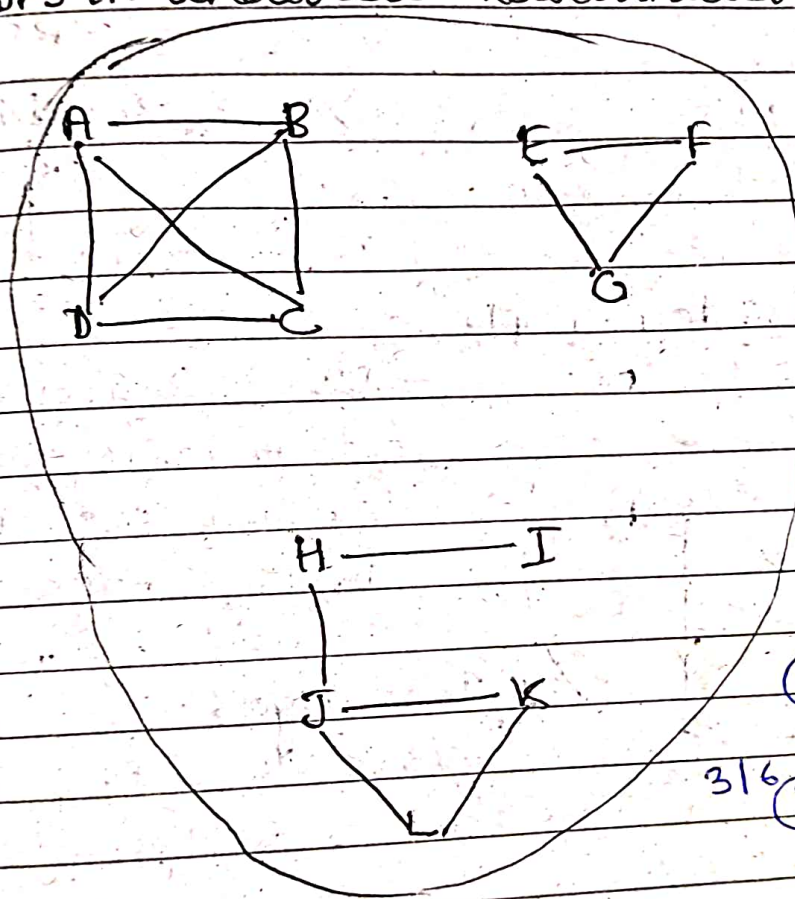 A B E F
D C G
H I
J K
L
3/6